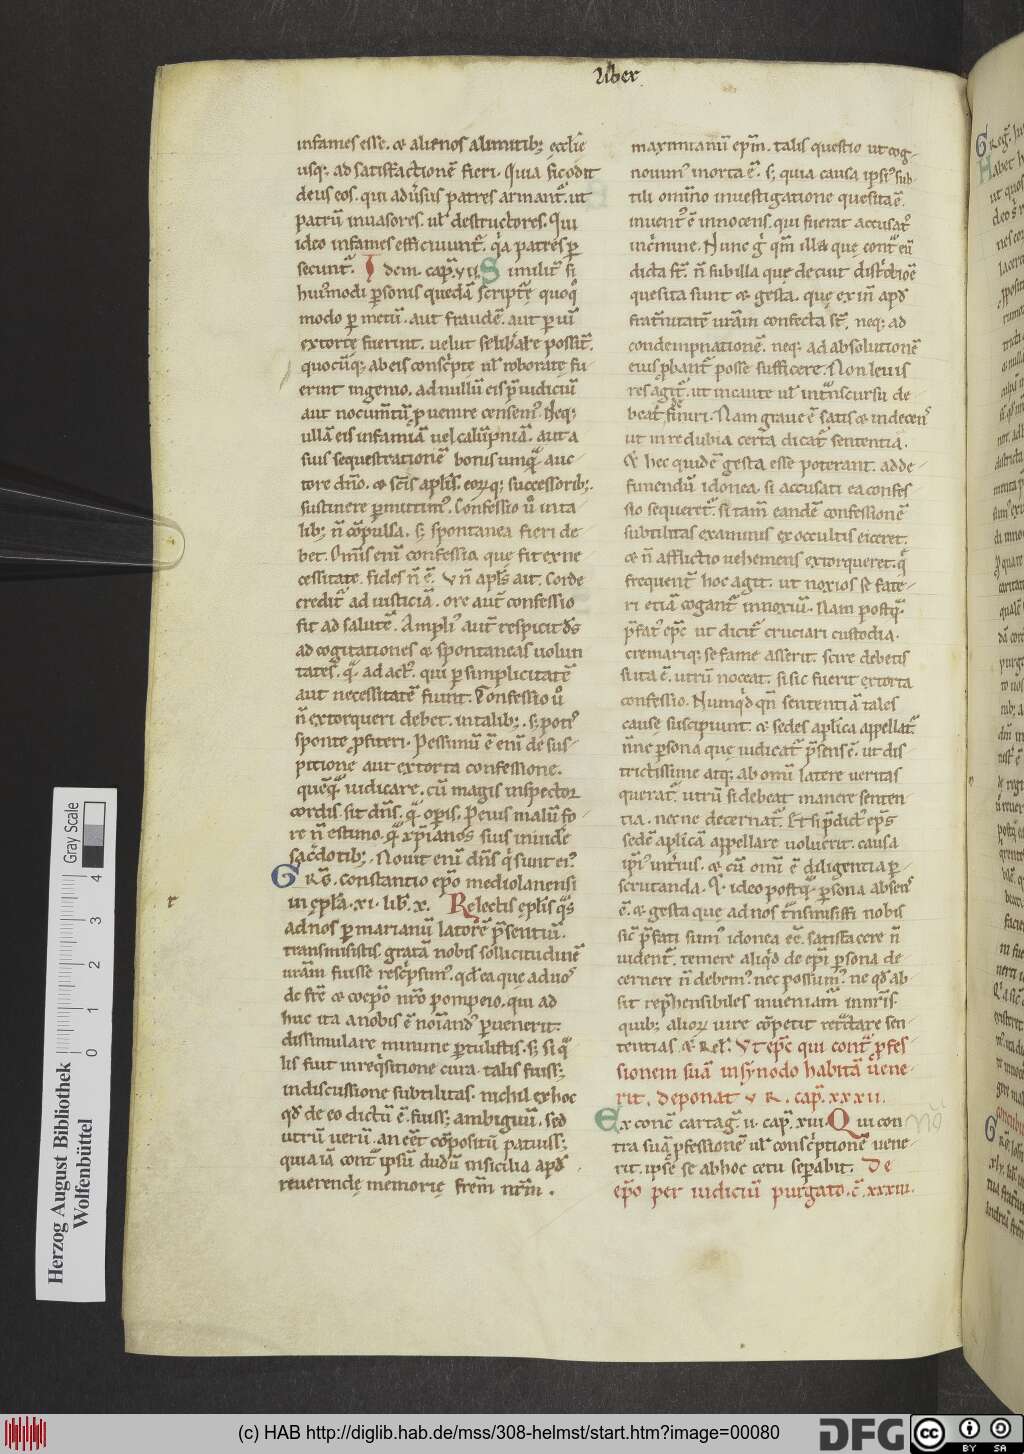 liber
infames esse. & alienos a limitib; ecclīe
usq; ad satisfactionē fieri. Quia sic odit
deus eos. qui aduersus patres armant̄. ut
patrū inuasores. ul' destructores. Qui
ideo infames efficiunt̄. qa patres p
secunt̄. Idem. cap. vii. Similit̄ si
hui9modi psonis quedā scriptẹ quoqo
modo p metū. aut fraudē. aut p uī
extortẹ fuerint. uelut se libare possint.
quocūq; ab eis conscpte ul' roboratẹ fu-
erint ingenio. ad nullū eis p̄iudiciū
aut nocumtū puenire censem9. Neq;
ullā eis infamiā uel calūpniā. aut a
suis sequestrationē bonis umq. auc-
tore dn̄o. & sc̄is aplis. eorq; successorib;.
sustinere pmittim9. Confessio uo in ta
lib; n̄ cōpulsa. s; spontanea fieri de-
bet. Om̄is enī confessio que fit ex ne
cessitate. fides n̄ ē. Vn̄ apls ait. Corde
credit̄ ad iusticiā. ore aut̄ confessio
fit ad salutē. Ampli9 aut̄ respicit ds
ad cogitationes & spontaneas uolun
tates. q. ad act9. qui p simplicitatē
aut necessitatē fiunt. Confessio uo
n̄ extorqueri debet. in talib;. s; poti9
sponte pfiteri. Pessimū ē enī de sus-
pitione aut extorta confessione.
quēq. iudicare. cū magis inspector
cordis sit dn̄s. q. opis. Peius malū fo-
re n̄ estimo. q xp̄ianos suis inuidē
sacdotib;. Nouit enī dn̄s q sunt ei9.
Grē. constantio ep̄o mediolanensi
in ep̄la. xi. lib. x. Relectis ep̄lis qs
ad nos p marianū latorē p̄sentiū.
transmisistis. gratā nobis sollicitudinē
urām fuisse rescpsim9. qd ea que a duo9
de fr̄e & coep̄o nr̄o pompeio. qui ad
huc ita a nobis ē noīand9 puenerit.
dissimulare minime ptulistis. s; si q
lis fuit in reqsitione cura. talis fuiss;
in discussione subtilitas. nichil ex hoc
qd de eo dictū ē. fuiss; ambiguū. sed
utrū uerū. an eēt cōpositū patuiss;
quia iā cont ipsū dudū in sicilia apd
reuerendẹ memoriẹ frem̄ nr̄m̄.
maximianū ep̄m. talis questio ut cog-
nouim9 inorta ē. s; quia causa ipsi9 sub
tili om̄ino inuestigatione quesita ē.
inuent9 ē innocens. qui fuerat accusat9
in cmine. Nunc g qm̄ illa quẹ cont eū
dicta st̄. n̄ sub illa quẹ decuit distctioē
quesita sunt & gesta. quẹ ex in apd
fratnitatē urām confecta st̄. neq; ad
condempnationē. neq; ad absolutionē
eius pbant̄ posse sufficere. Non leuis
res agit̄. ut incaute ul' intnscursu de
beat finiri. Nam graue ē satis & indecens
ut in re dubia certa dicat̄ sententia.
Et hec quidē gesta esse poterant. adde-
funendū idonea. si accusati ea confes
sio sequeret̄. si tam̄ eandē confessionē
subtilitas examinis ex occultis eiceret.
& n̄ afflictio uehemens extorqueret. q
frequent̄ hoc agit. ut noxios se fate-
ri etiā cogant̄ innoxiū. Nam postq.
p̄fat9 ep̄c ut dicit̄ cruciari custodia.
cremariq; se fame asserit. scire debetis
si ita ē. utrū noceat. si sic fuerit extorta
confessio. Numqd qn̄ sententiā tales
causẹ suscipiunt. & sedes aplica appellat̄.
n̄ne psona quẹ iudicat̄ p̄sens ē. ut dis
trictissime atq; ab omī latere ueritas
querat̄. utrū si debeat manere senten-
tia. necne decernat̄. Et si p̄dict9 ep̄s
sedē aplicā appellare uoluerit. causa
ipi9 intius. & cū omī ē diligentia p-
scrutanda. Q. ideo postq. psona absens
ē. & gesta quẹ ad nos tnsmissisti nobis
sic p̄fati sum9 idonea eē. satisfacere n̄
uident̄. temere aliqd de ep̄i psona de-
cernere n̄ debem9. nec possum9. ne qd ab
sit rephensibiles inueniam̄ in nris
quib; alior uire cōpetit retctare sen-
tentias. & Rel. Ut ep̄c qui cont pfes-
sionem suā in synodo habitā uene-
rit. deponat v R. cap. xxxii.
Ex conc̄ cartag. ii. cap. xiii. Qui con
tra suā pfessionē ul' conscptionē uene-
rit. ipse se ab hoc cetu sepabit. De
ep̄o per iudiciū purgato. c̄. xxxiii.
Herzog August Bibliothek
Wolfenbüttel
0 1 2 3 4
Gray Scale
(c) HAB http://diglib.hab.de/mss/308-helmst/start.htm?image=00080
DFG
cc BY SA